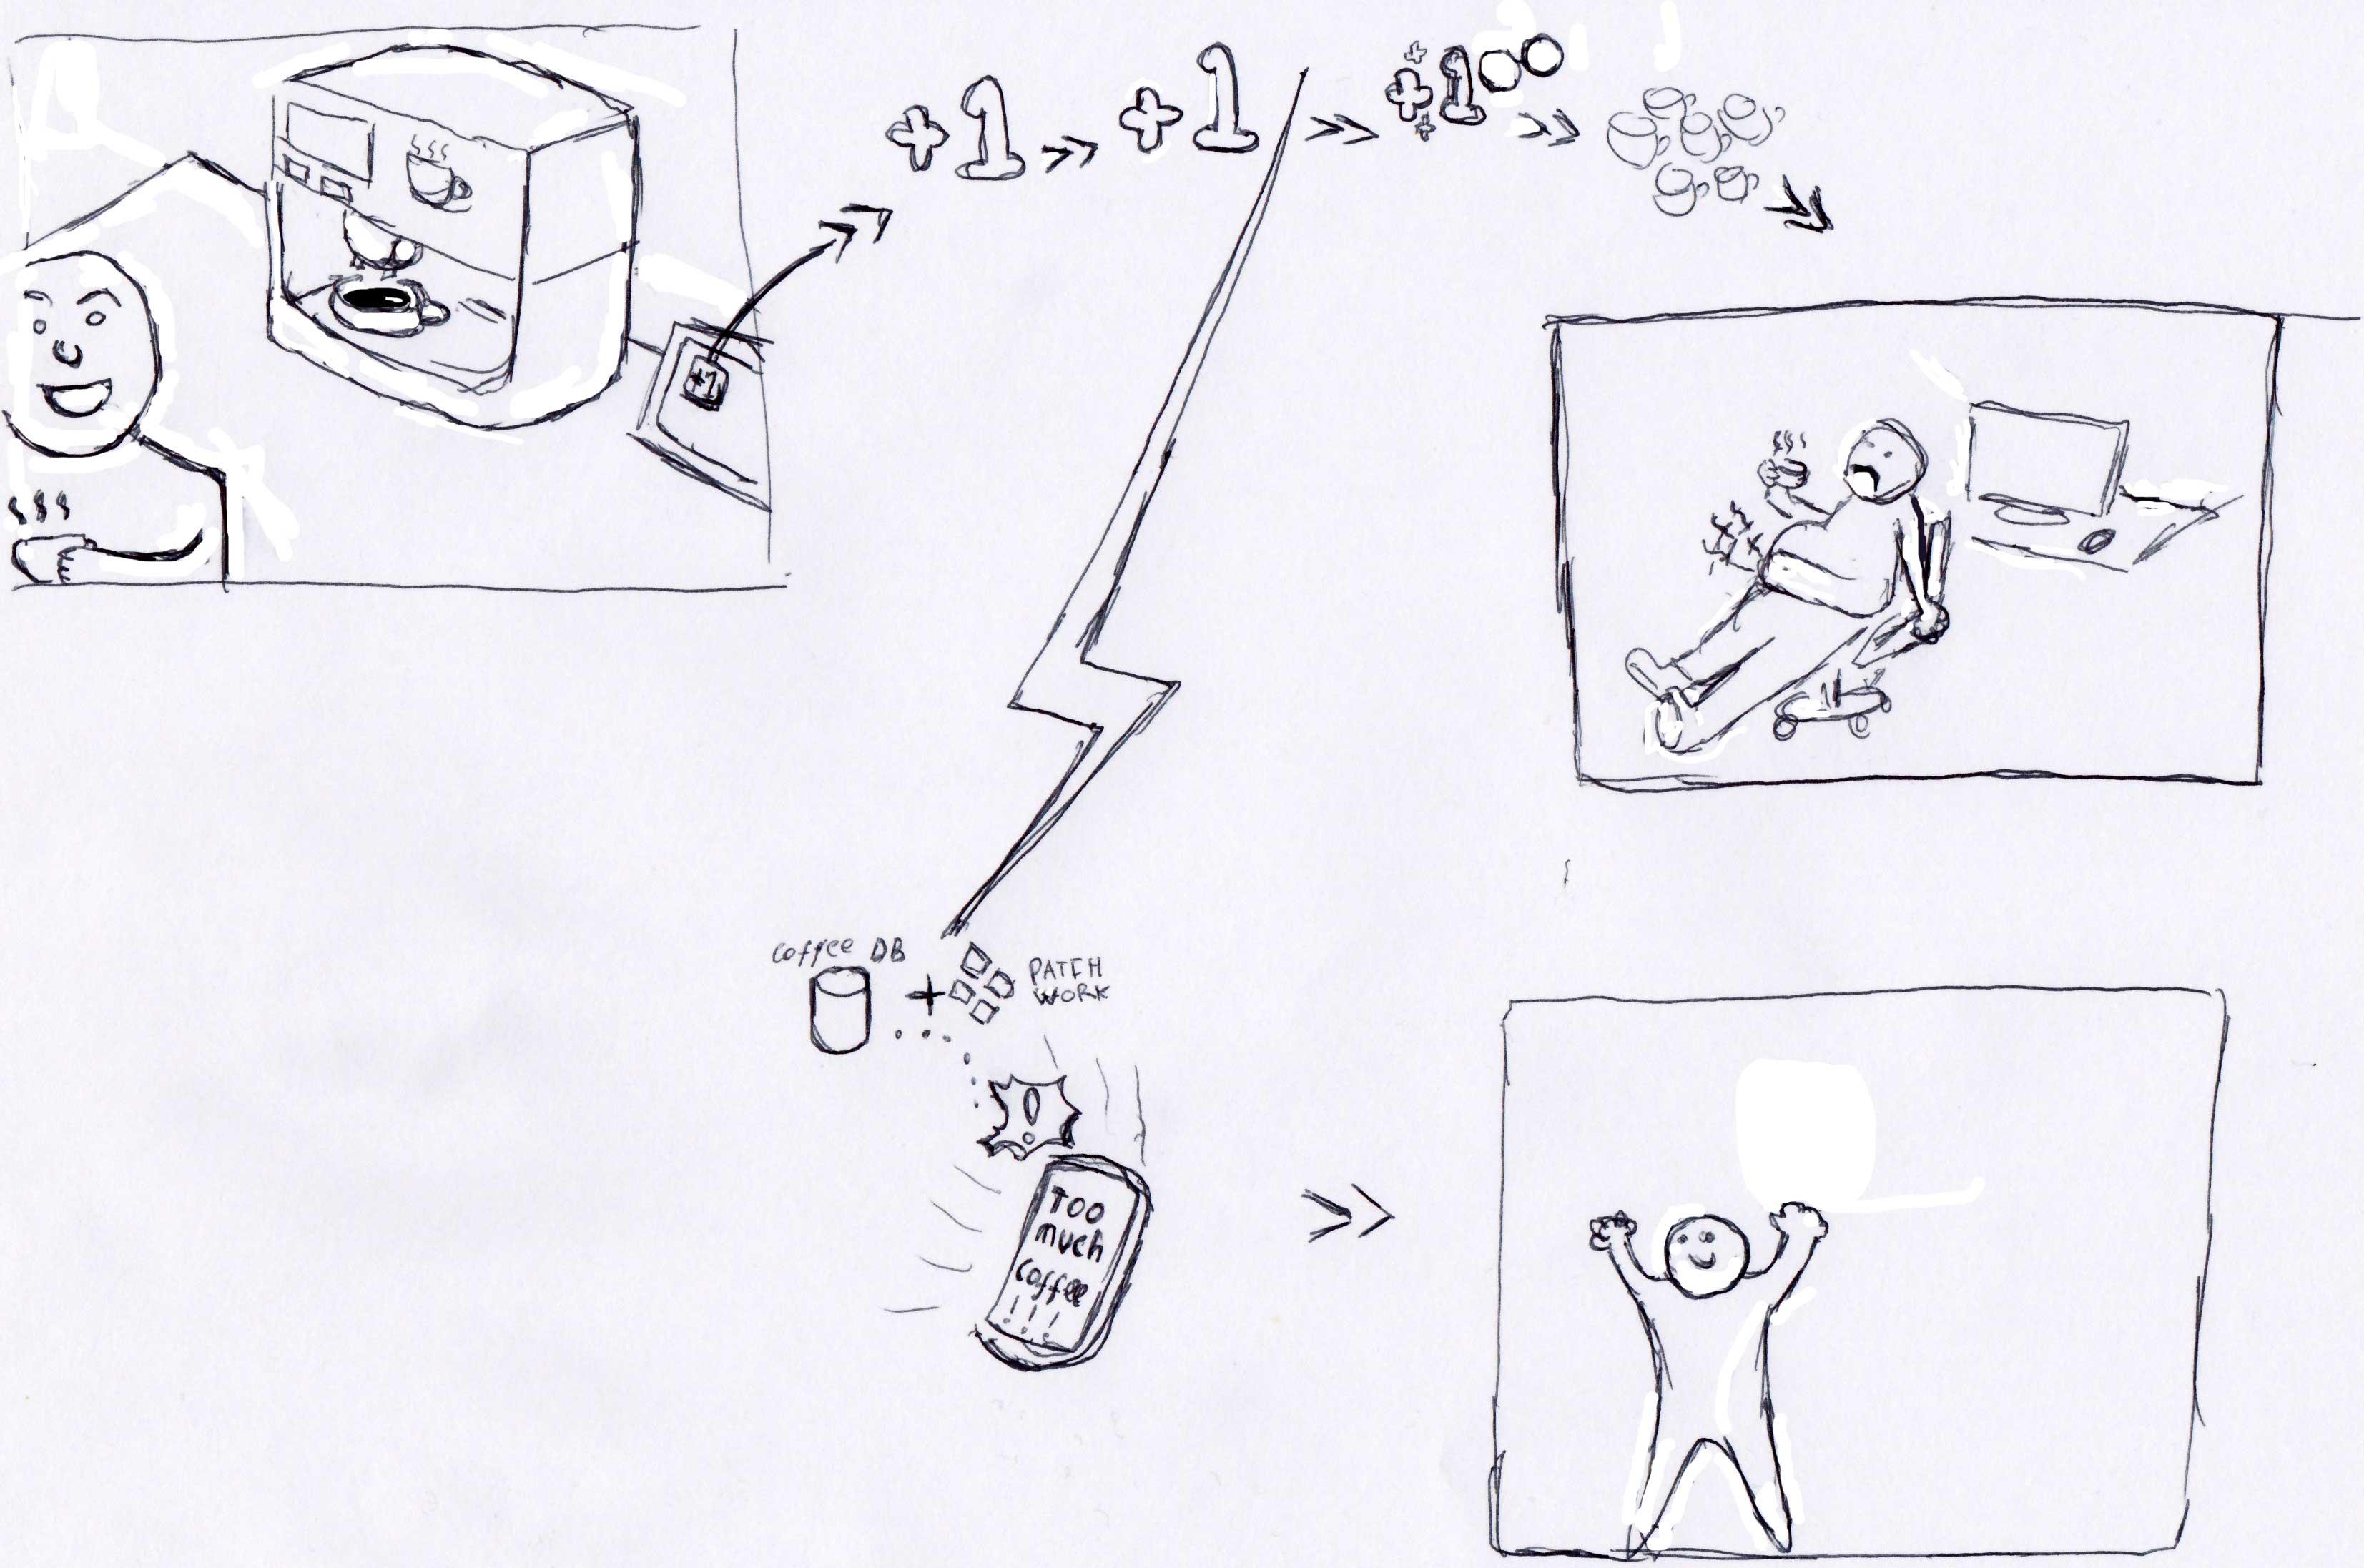 +1
+1
+100
+1
coffee DB
+
PATCH
WORK
!
TOO
much
coffee
!!!